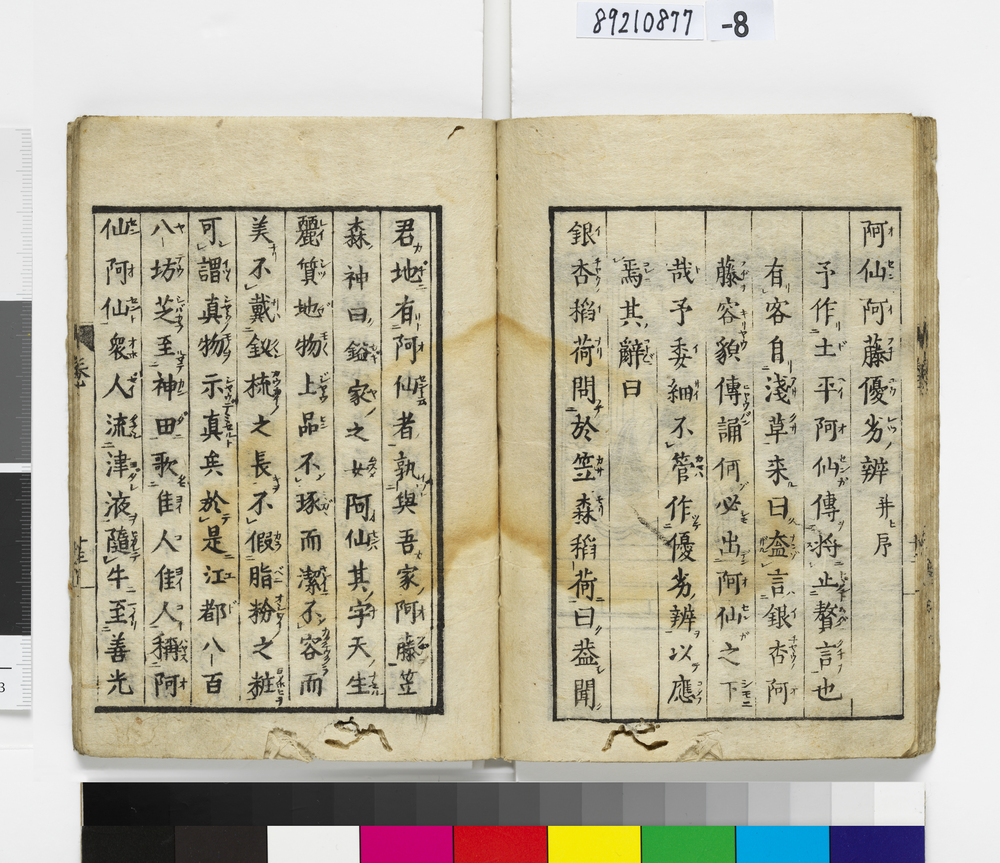 89210877 -8
阿仙阿藤優劣辨 并序
予作土平阿仙傳將止贅言也
有客自淺草来曰盍言銀杏阿
藤容貌傳誦何必出阿仙之下
哉予委細不管作優劣辨以應
焉其辭曰
銀杏稻荷問於笠森稻荷曰益聞
君地有阿仙者孰與吾家阿藤笠
森神曰鎰家之女阿仙其字天生
麗質地物上品不琢而潔不容而
美不戴釵梳之長不假脂粉之粧
可謂真物示真矣於是江都八百
八坊芝至神田歌隹人隹人稱阿
仙阿仙衆人流津液隨牛至善光
3